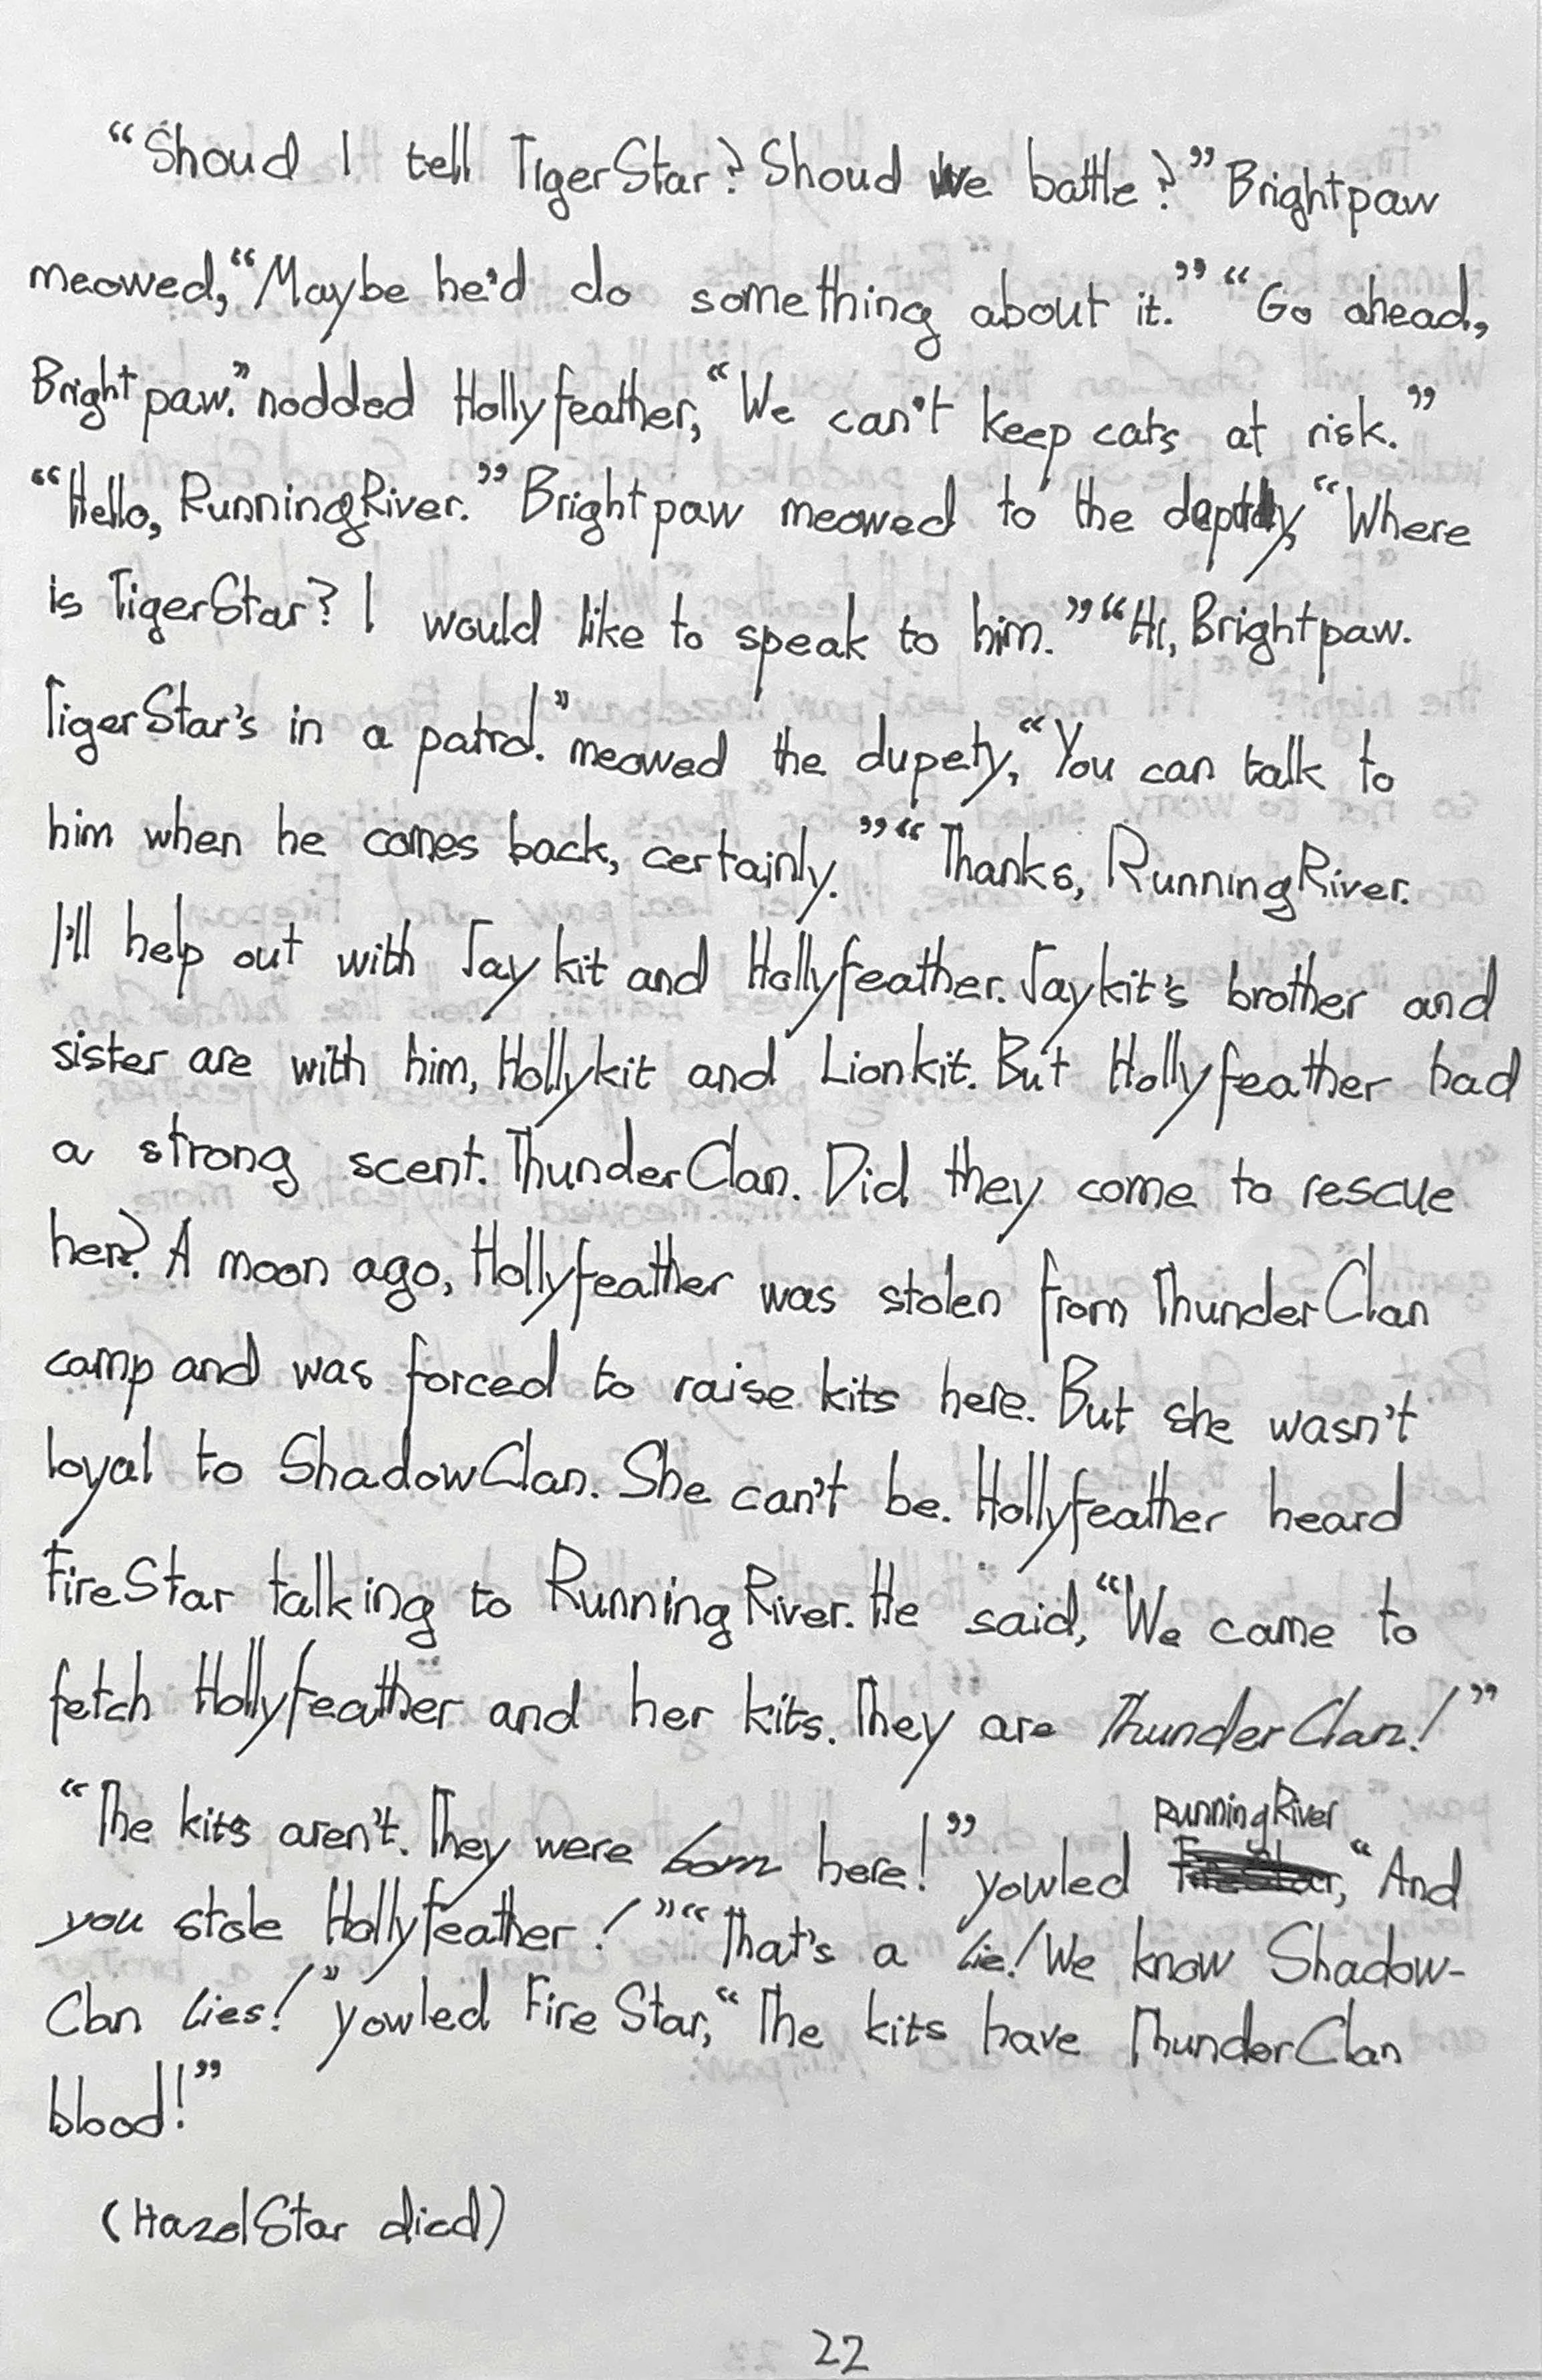 “Shoud I tell TigerStar? Shoud We battle?” Brightpaw
meowed, “Maybe he'd do something about it.” “Go ahead,
Brightpaw.” nodded Hollyfeather, “We can't keep cats at risk.”
“Hello, RunningRiver.” Brightpaw meowed to the “Where
is TigerStar? I would like to speak to him.” “Hi, Brightpaw.
TigerStar's in a patrol.” meowed the dupety, “You can talk to
him when he comes back, certainly.” “Thanks, RunningRiver.
I'll help out with Jaykit and Hollyfeather. Jaykit's brother and
sister are with him, Hollykit and Lionkit. But Hollyfeather had
a strong scent. ThunderClan. Did they come to rescue
her? A moon ago, Hollyfeather was stolen from ThunderClan
camp and was forced to raise kits here. But she wasn't
loyal to ShadowClan. She can't be. Hollyfeather heard
FireStar talking to RunningRiver. He said, “We came to
fetch Hollyfeather and her kits. They are ThunderClan!”
“The kits aren't. They were born here!” yowled RunningRiver, “And
you stole Hollyfeather!” “That's a lie! We know Shadow-
Clan lies!” yowled FireStar, “The kits have ThunderClan
blood!”
(HazelStar died)
22